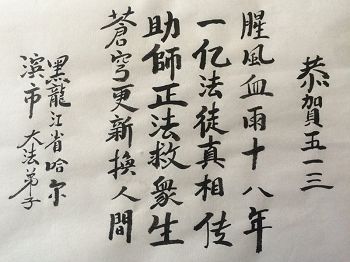 恭賀五一三
腥風血雨十八年
一亿法徒真相传
助師正法救衆生
蒼穹更新換人間
黑龍江省哈尔
滨市 大法弟子